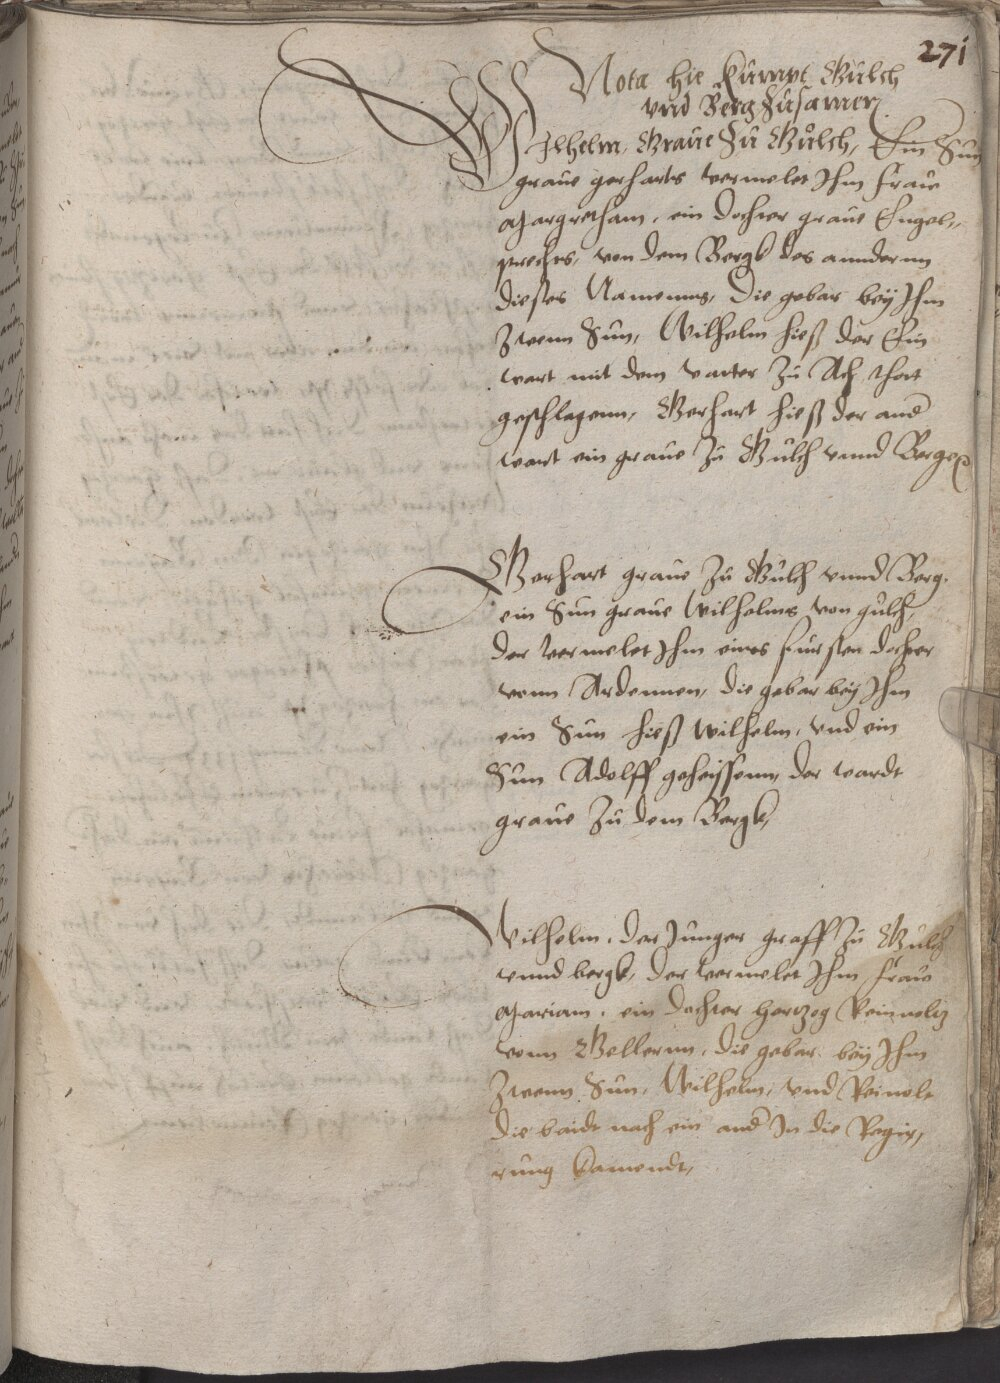 271
Nota hie kumpt Gulch
vnd Berg zusamen
Wilhelm, Graue zu Gulch, Ein Sun
graue gerharts vermelet Ihm fraue
Margretham, ein dochter graue Engel„
prechts, von dem Bergk des anndernn
dieses Namenns, die gebar bey Ihm
Zwenn Sun, Wilhelm hieß der Ein
wart mit dem vatter zu Ach thot
geschlagenn, Gerhart hieß der and
wart ein graue zu Gulch vnnd Berge
Gerhart graue zu Gulch vnnd Berg,
ein Sun graue Wilhelms von gulch,
der vermelet Ihm eines fursten dochter
vonn Ardennen, die gebar bey Ihm
ein Sun hieß Wilhelm, vnd ein
Sun Adolff geheissenn, der wardt
graue zu dem Bergk,
Wilhelm, der Junger graff zu Gulch
vnnd bergk, der vermelet Ihm fraue
Mariam, ein dochter hertzog Reinneltz
vonn Gellernn, die gebar bey Ihm
Zwenn Sun, Wilhelm, vnd Reinolt
die baidt nach ein and In die Regir,
rung kamendt,